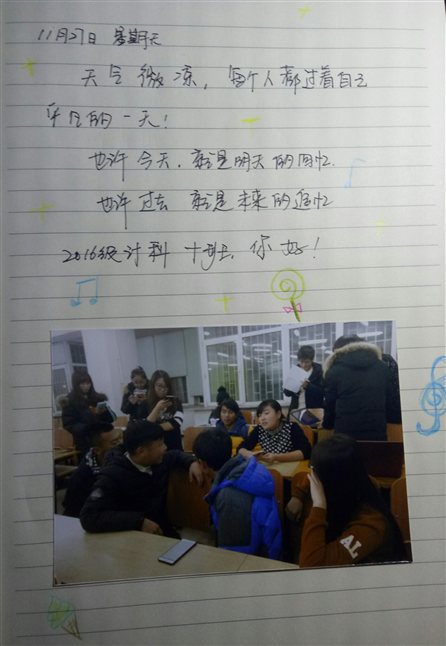 11月27日 星期天
天气微凉，每个人都过着自己
平凡的一天！
也许今天，就是明天的回忆
也许过去 就是未来的追忆
2016级计科十班，你好！
AL